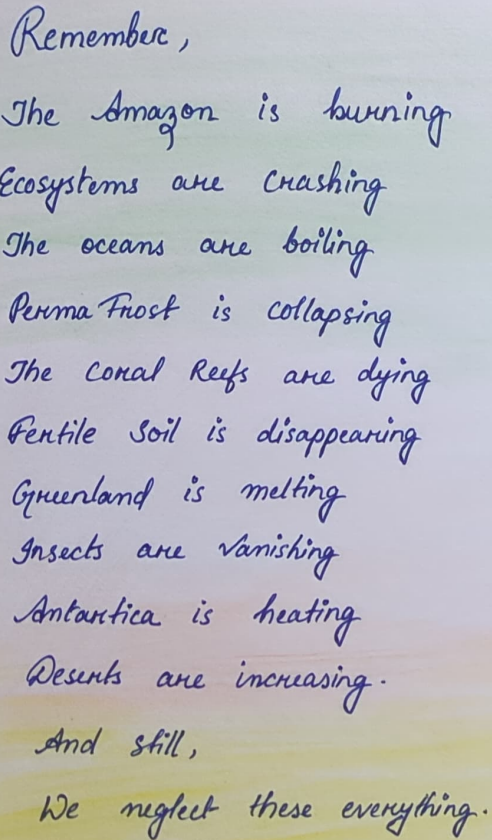 Remember,
The Amazon is burning
Ecosystems are crashing
The oceans are boiling
Perma Frost is collapsing
The Coral Reefs are dying
Fertile Soil is disappearing
Greenland is melting
Insects are Vanishing
Antartica is heating
Deserts are increasing.
And still,
We neglect these everything.